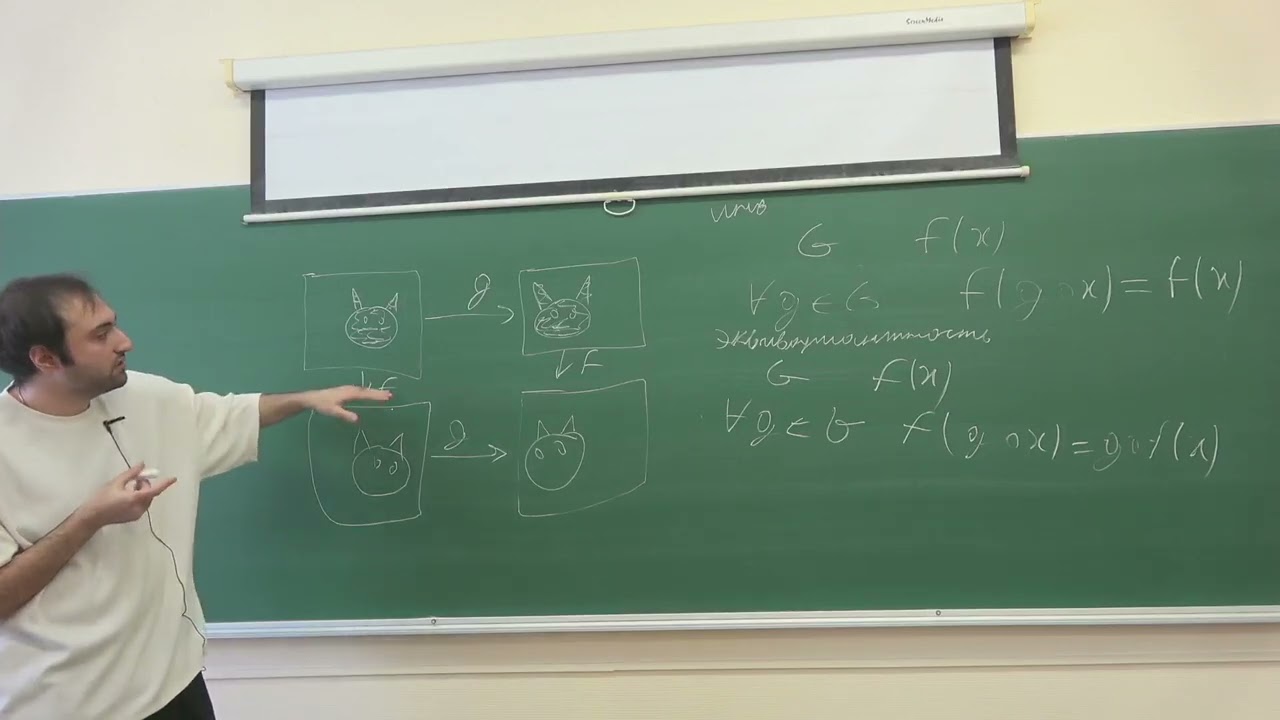 ScreenMedia
инв
G f(x)
∀g∈G f(g∘x)=f(x)
эквивариантность
G f(x)
∀g∈G f(g∘x)=g∘f(x)
g
F
F
g